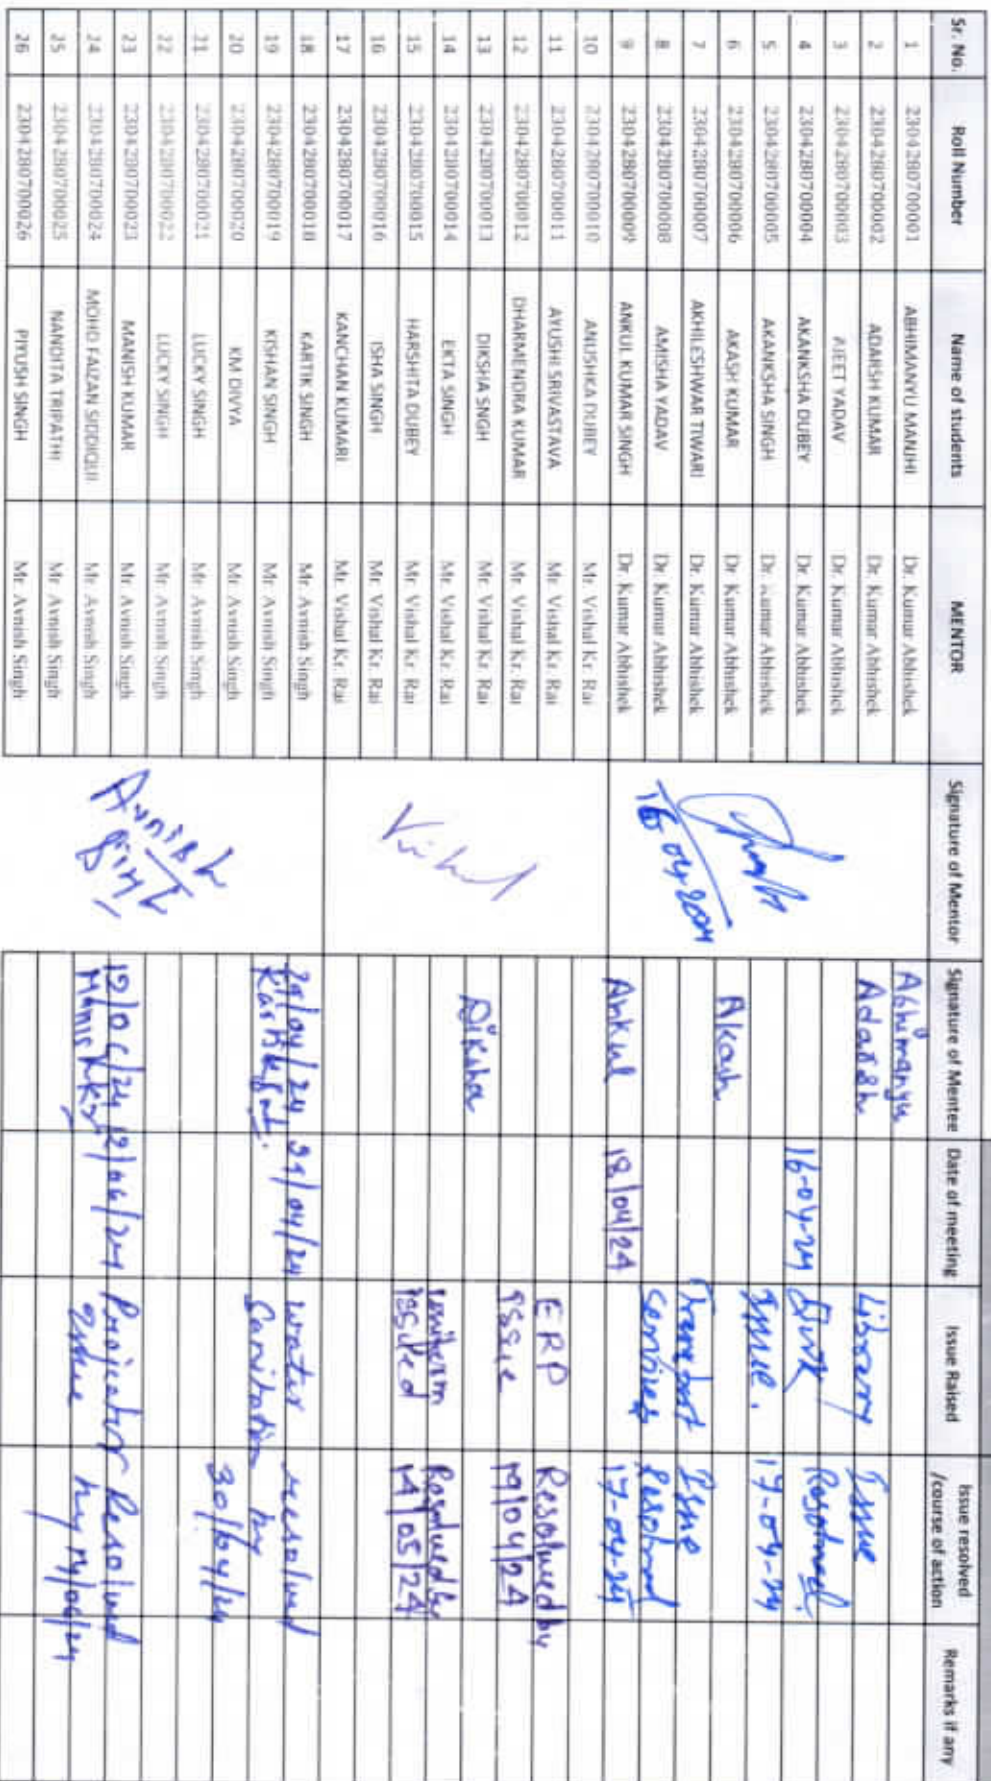 Sr. No. Roll Number Name of students MENTOR Signature of Mentor Signature of Mentee Date of meeting Issue Raised Issue resolved /course of action Remarks if any
1 230428070001 ABHIMANYU MANJHI Dr. Kumar Abhishek Abhimanyu
2 2304280700002 ADARSH KUMAR Dr. Kumar Abhishek Adarsh Library Issue
3 2304280700003 AJEET YADAV Dr. Kumar Abhishek
4 2304280700004 AKANKSHA DUBEY Dr. Kumar Abhishek 16-04-24 Resolved.
5 2304280700005 AKANKSHA SINGH Dr. Kumar Abhishek Issue. 17-04-24
6 2304280700006 AKASH KUMAR Dr. Kumar Abhishek Akash
7 2304280700007 AKHILESHWAR TIWARI Dr. Kumar Abhishek Issue
8 2304280700008 AMISHA YADAV Dr. Kumar Abhishek 16 04 2024 Services Resolved
9 2304280700009 ANKUL KUMAR SINGH Dr. Kumar Abhishek Ankul 18/04/24 17-04-24
10 2304280700010 ANUSHKA DUBEY Mr. Vishal Kr. Rai
11 2304280700011 AYUSHI SRIVASTAVA Mr. Vishal Kr. Rai ERP Resolved by
12 2304280700012 DHARMENDRA KUMAR Mr. Vishal Kr. Rai Issue 19/04/24
13 2304280700013 DIKSHA SNGH Mr. Vishal Kr. Rai Diksha
14 2304280700014 EKTA SINGH Mr. Vishal Kr. Rai Vishal Resolved by
15 2304280700015 HARSHITA DUBEY Mr. Vishal Kr. Rai 14/05/24
16 2304280700016 ISHA SINGH Mr. Vishal Kr. Rai
17 2304280700017 KANCHAN KUMARI Mr. Vishal Kr. Rai
18 2304280700018 KARTIK SINGH Mr. Avnish Singh 29/04/24 29/04/24 water resolved
19 2304280700019 KISHAN SINGH Mr. Avnish Singh Sanitation by
20 2304280700020 KM DIVYA Mr. Avnish Singh 30/04/24
21 2304280700021 LUCKY SINGH Mr. Avnish Singh Avnish
22 2304280700022 LUCKY SINGH Mr. Avnish Singh Singh
23 2304280700023 MANISH KUMAR Mr. Avnish Singh 12/06/24 12/06/24 Projector Resolved
24 2304280700024 MOHD FAIZAN SIDDIQUI Mr. Avnish Singh Issue by 14/06/24
25 2304280700025 NANDITA TRIPATHI Mr. Avnish Singh
26 2304280700026 PIYUSH SINGH Mr. Avnish Singh